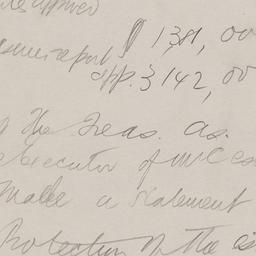 approved
$ 1381, 00
report
app. 3142, 00
the Treas. as.
executor of
make a statement
Protection of the